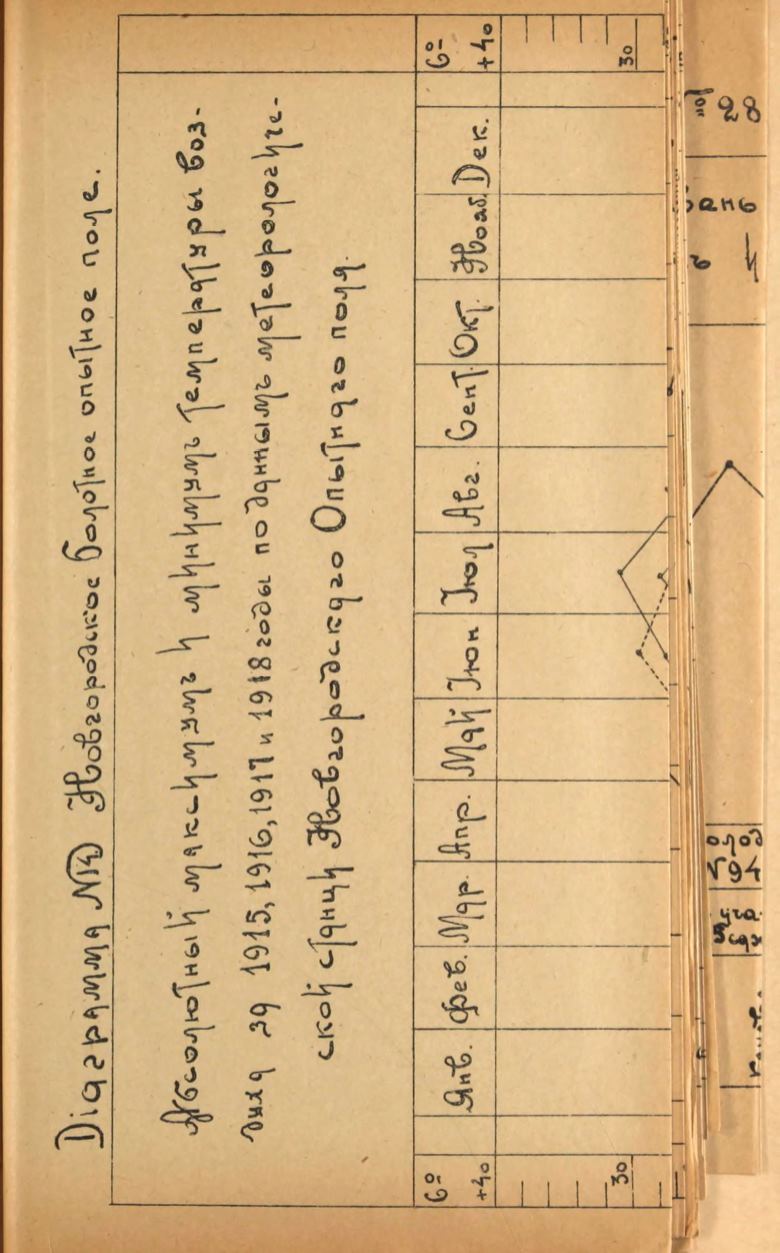 Діаграмма №
Новгородское болотное опытное поле.
Абсолютный максимумъ и минимумъ температуры воз-
духа за 1915, 1916, 1917 и 1918 годы по даннымъ метеорологиче-
ской станци Новгородскаго Опытнаго поля.
C° Янв. Фев. Мар. Апр. Май Іюн Іюл Авг. Сент. Окт. Нояб. Дек. C°
+40 +40
30 30
28